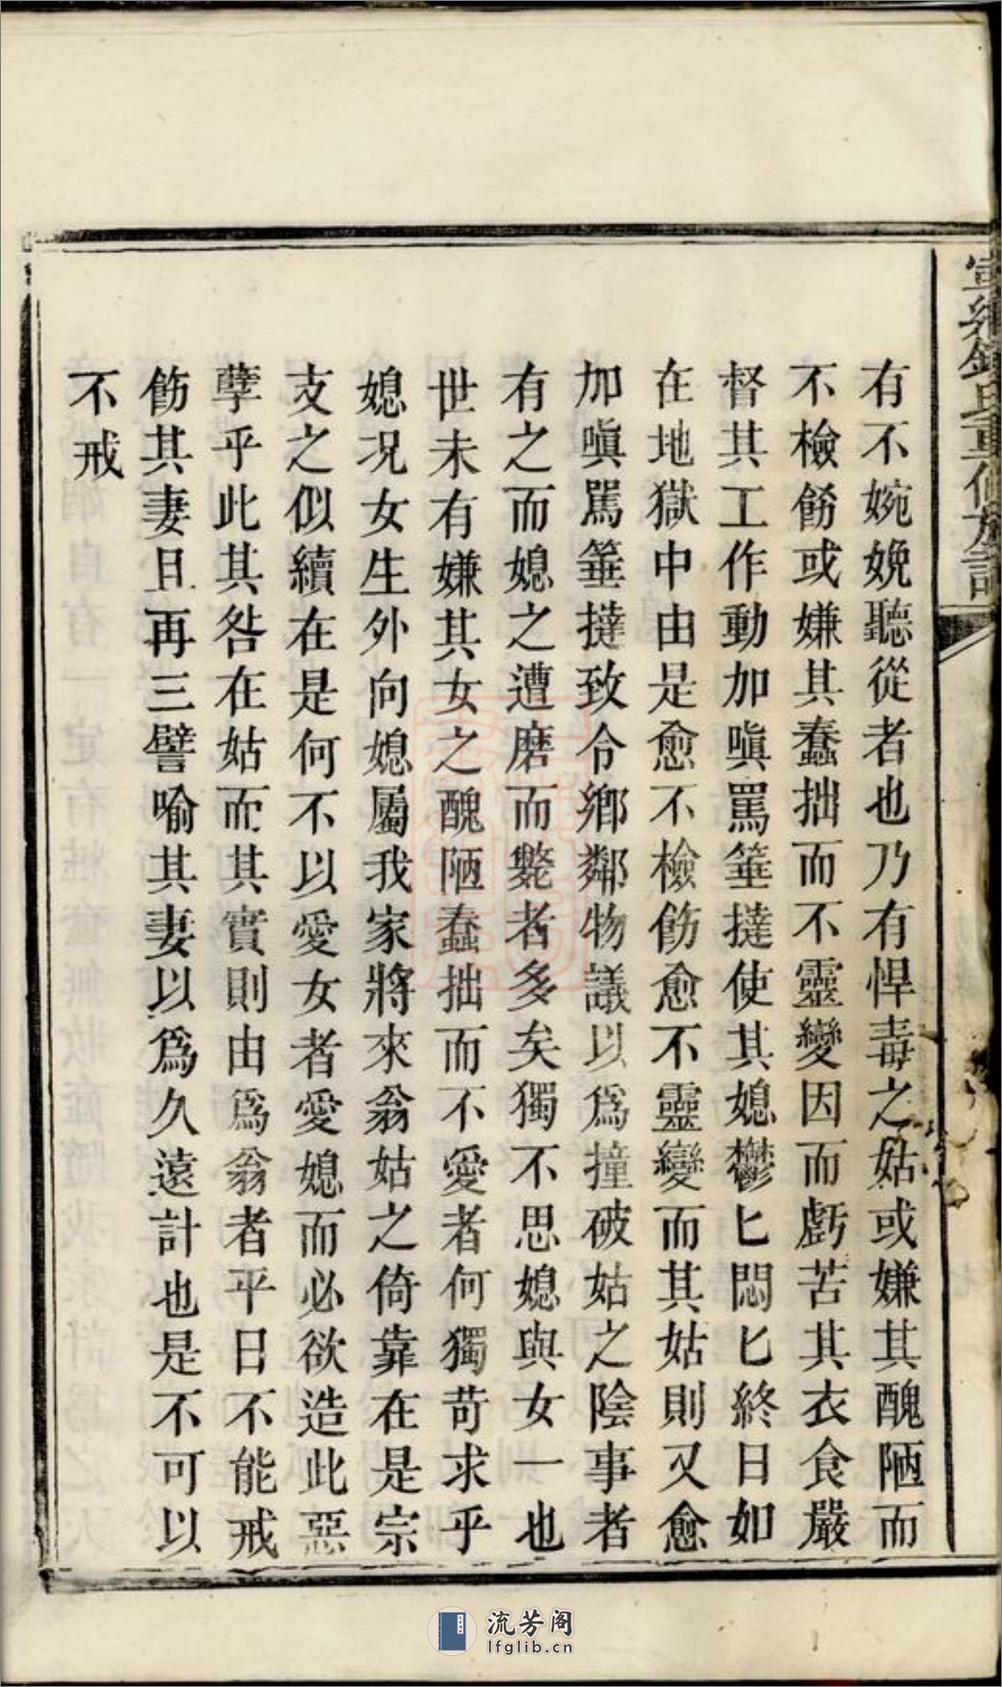 有不婉娩聽從者也乃有悍毒之姑或嫌其醜陋而
不檢飭或嫌其蠢拙而不靈變因而虧苦其衣食嚴
督其工作動加嗔罵箠撻使其媳鬱匕悶匕終日如
在地獄中由是愈不檢飭愈不靈變而其姑則又愈
加嗔罵箠撻致令鄉鄰物議以爲撞破姑之陰事者
有之而媳之遭磨而斃者多矣獨不思媳與女一也
世未有嫌其女之醜陋蠢拙而不愛者何獨苛求乎
媳况女生外向媳屬我家將來翁姑之倚靠在是宗
支之似續在是何不以愛女者愛媳而必欲造此惡
孽乎此其咎在姑而其實則由爲翁者平日不能戒
飭其妻且再三譬喻其妻以爲久遠計也是不可以
不戒
流芳阁
lfglib.cn